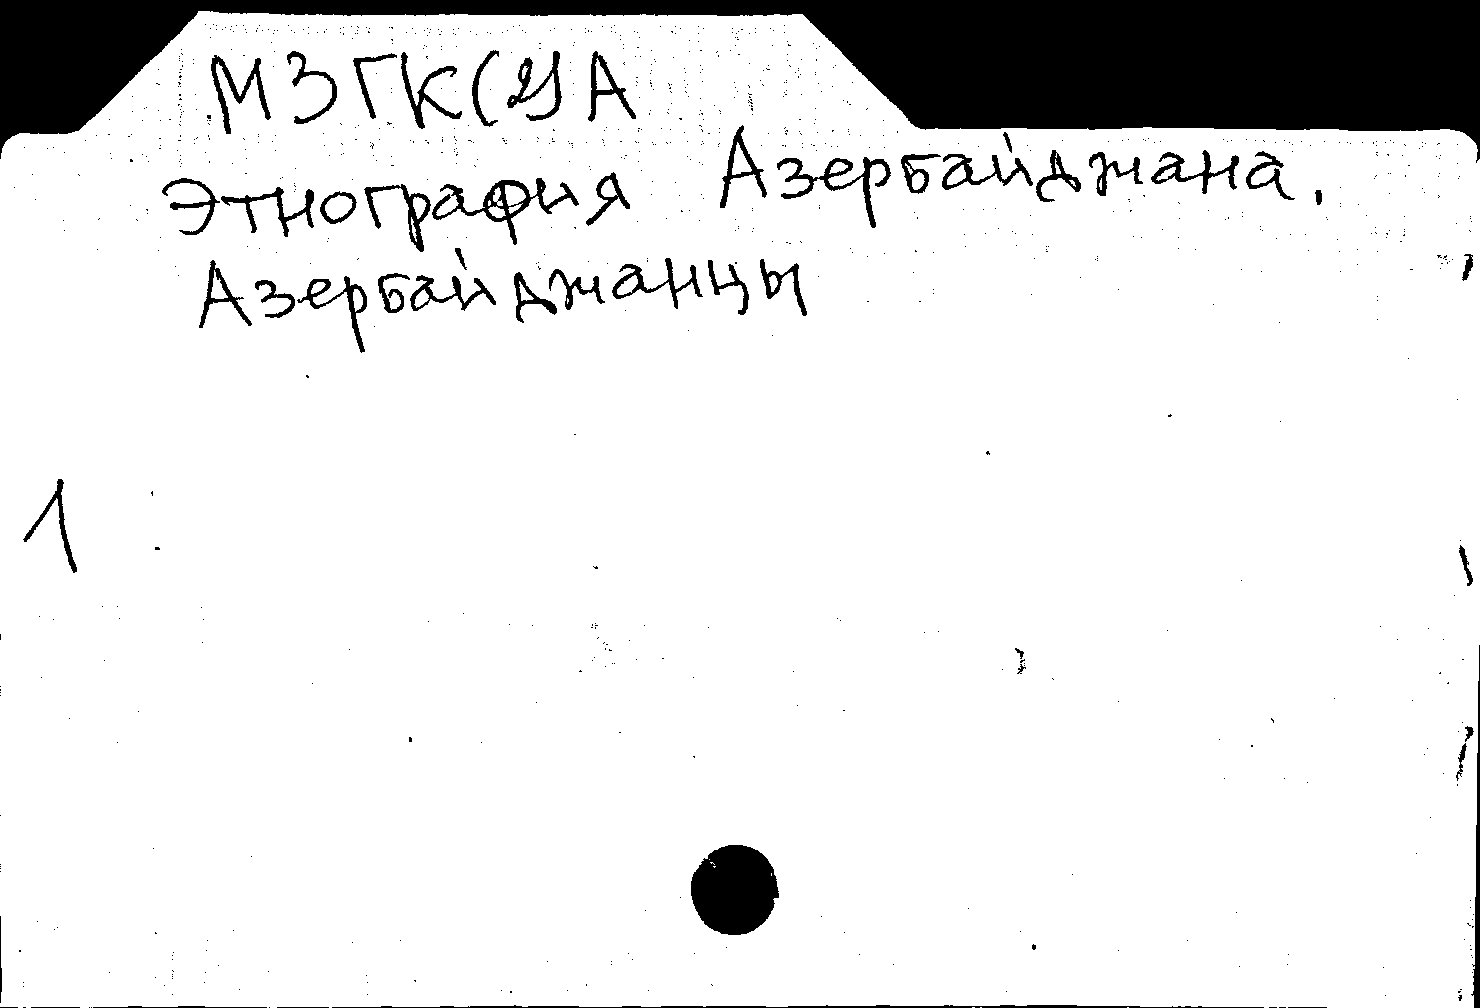 МЗГК(2)А
Этнография Азербайджана.
Азербайджанцы
1